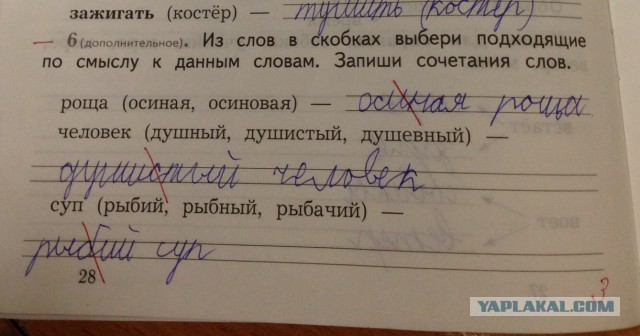 зажигать (костёр) — тушить (костёр)
6 (дополнительное). Из слов в скобках выбери подходящие
по смыслу к данным словам. Запиши сочетания слов.
роща (осиная, осиновая) — осиная роща
человек (душный, душистый, душевный) —
душистый человек
суп (рыбий, рыбный, рыбачий) —
рыбий суп
28
YAPLAKAL.COM